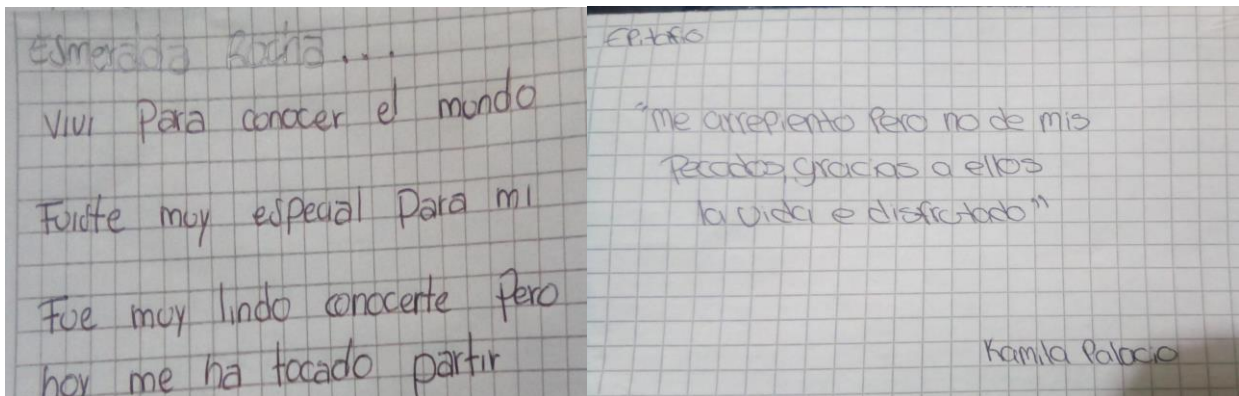 Esmerada Rocha...
Vivi Para conocer el mundo
Fuiste muy especial Para mi
Fue muy lindo conocerte Pero
hoy me ha tocado partir
Epitafio
"me arrepiento Pero no de mis
Pecados, gracias a ellos
la vida e disfrutado"
Kamila Palacio